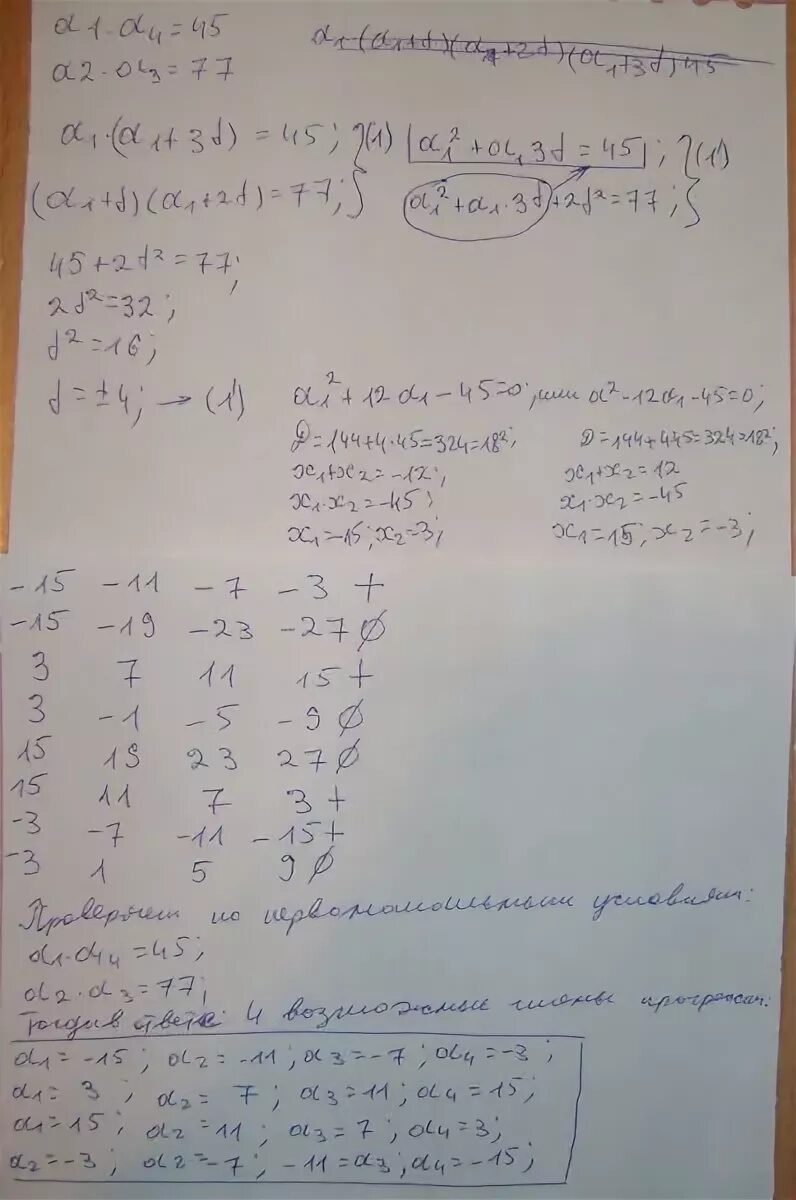 a1·a4=45
a1·(a1+d)(a1+2d)(a1+3d)45
a2·a3=77
a1·(a1+3d)=45; }(1) a1²+a1 3d=45; }(1')
(a1+d)(a1+2d)=77; } a1²+a1·3d+2d²=77; }
45+2d²=77;
2d²=32;
d²=16;
d=±4; → (1') a1²+12a1-45=0; или a²-12a1-45=0;
D=144+4·45=324=18²; D=144+4·45=324=18²;
x1+x2=-12; x1+x2=12
x1·x2=-45; x1·x2=-45
x1=-15; x2=3; x1=15; x2=-3;
-15 -11 -7 -3 +
-15 -19 -23 -27 ∅
3 7 11 15 +
3 -1 -5 -9 ∅
15 19 23 27 ∅
15 11 7 3 +
-3 -7 -11 -15 +
-3 1 5 9 ∅
Проверяем по первоначальным условиям:
a1·a4=45;
a2·a3=77;
Тогда в ответе 4 возможные члены прогрессии:
a1=-15; a2=-11; a3=-7; a4=-3;
a1=3; a2=7; a3=11; a4=15;
a1=15; a2=11; a3=7; a4=3;
a2=-3; a2=-7; -11=a3; a4=-15;